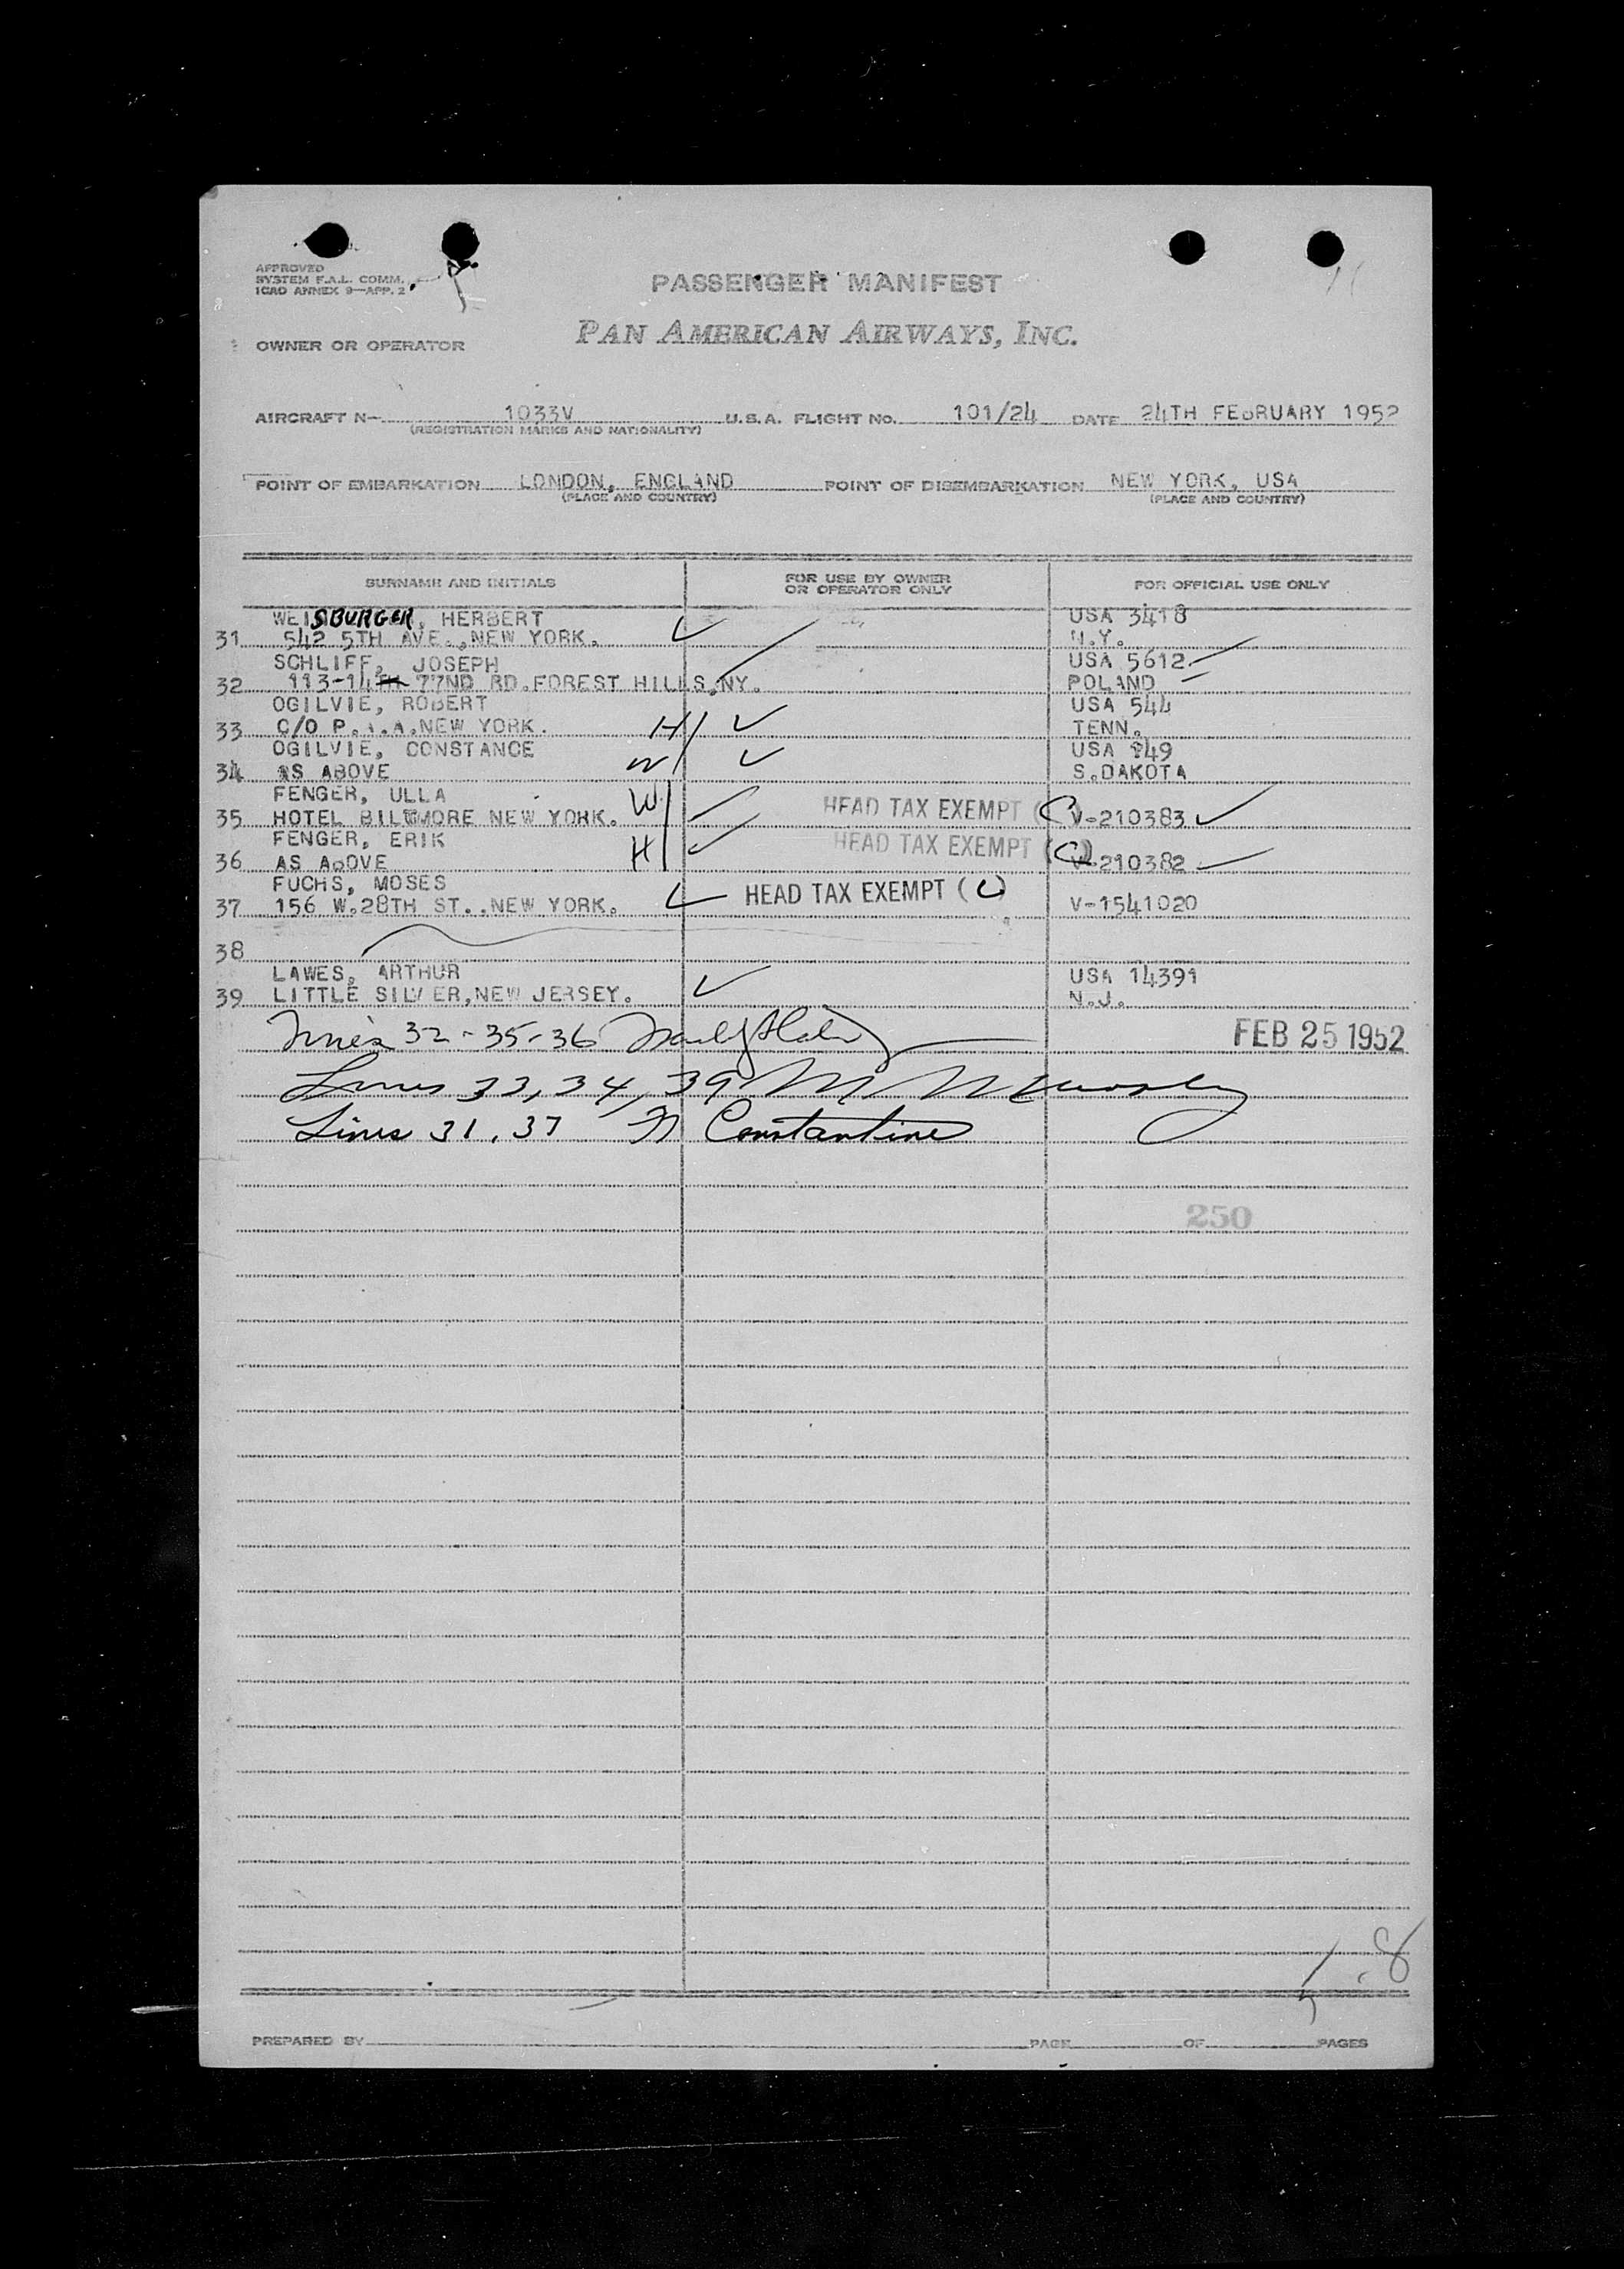 APPROVED
SYSTEM F.A.L. COMM.
ICAO ANNEX 9—APP. 2
PASSENGER MANIFEST
OWNER OR OPERATOR PAN AMERICAN AIRWAYS, INC.
AIRCRAFT N— 1033V U.S.A. FLIGHT NO. 101/24 DATE 24TH FEBRUARY 1952
(REGISTRATION MARKS AND NATIONALITY)
POINT OF EMBARKATION LONDON, ENGLAND POINT OF DISEMBARKATION NEW YORK, USA
(PLACE AND COUNTRY) (PLACE AND COUNTRY)
SURNAME AND INITIALS FOR USE BY OWNER OR OPERATOR ONLY FOR OFFICIAL USE ONLY
WEISBURGER, HERBERT USA 3418
31 542 5TH AVE.,NEW YORK. N.Y.
SCHLIFF, JOSEPH USA 5612
32 113-14TH 77ND RD.FOREST HILLS,NY. POLAND
OGILVIE, ROBERT USA 544
33 C/O P.A.A.NEW YORK. H TENN.
OGILVIE, CONSTANCE USA 149
34 AS ABOVE W S.DAKOTA
FENGER, ULLA W
35 HOTEL BILTMORE NEW YORK. HEAD TAX EXEMPT (C) V-210383
FENGER, ERIK H
36 AS ABOVE HEAD TAX EXEMPT (C) V-210382
FUCHS, MOSES
37 156 W.28TH ST..NEW YORK. HEAD TAX EXEMPT (C) V-1541020
38
LAWES, ARTHUR USA 14391
39 LITTLE SILVER,NEW JERSEY. N.J.
32-35-36 FEB 25 1952
Lines 33, 34, 39
Lines 31, 37 Constantine
250
8
PREPARED BY PAGE OF PAGES